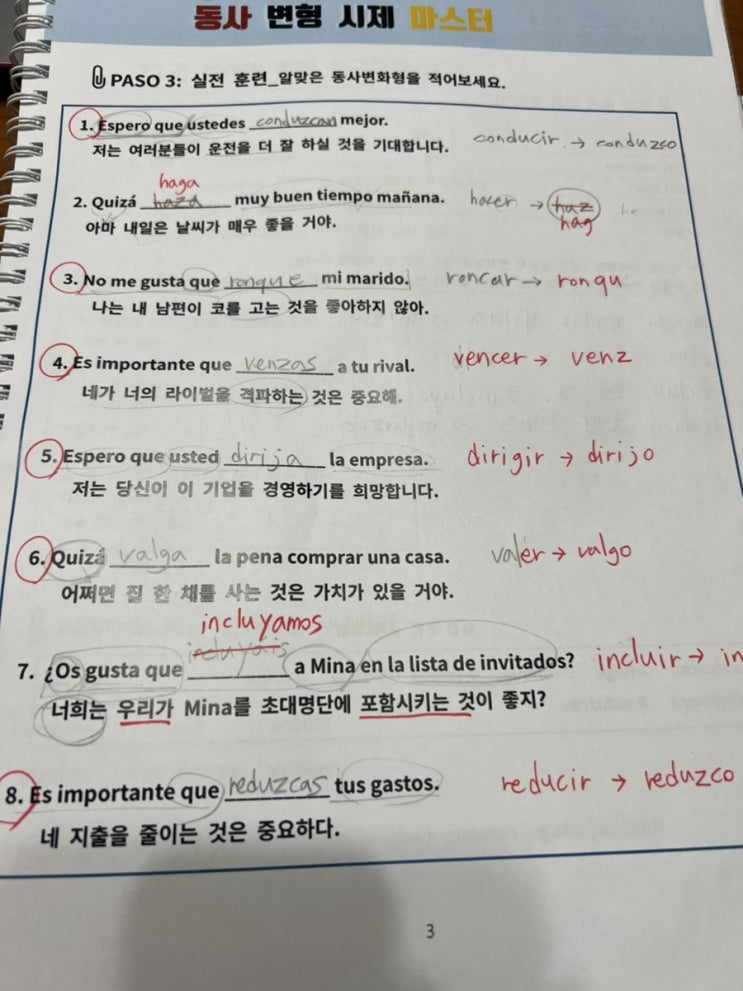 동사 변형 시제 마스터
PASO 3: 실전 훈련_알맞은 동사변화형을 적어보세요.
1. Espero que ustedes conduzcan mejor. conducir → conduzco
저는 여러분들이 운전을 더 잘 하실 것을 기대합니다.
haga
2. Quizá haza muy buen tiempo mañana. hacer → haz
hag
아마 내일은 날씨가 매우 좋을 거야.
3. No me gusta que ronque mi marido. roncar → ronqu
나는 내 남편이 코를 고는 것을 좋아하지 않아.
4. Es importante que venzas a tu rival. vencer → venz
네가 너의 라이벌을 격파하는 것은 중요해.
5. Espero que usted dirija la empresa. dirigir → dirijo
저는 당신이 이 기업을 경영하기를 희망합니다.
6. Quizá valga la pena comprar una casa. valer → valgo
어쩌면 집 한 채를 사는 것은 가치가 있을 거야.
incluyamos
7. ¿Os gusta que incluyais a Mina en la lista de invitados? incluir → in
너희는 우리가 Mina를 초대명단에 포함시키는 것이 좋지?
8. Es importante que reduzcas tus gastos. reducir → reduzco
네 지출을 줄이는 것은 중요하다.
3